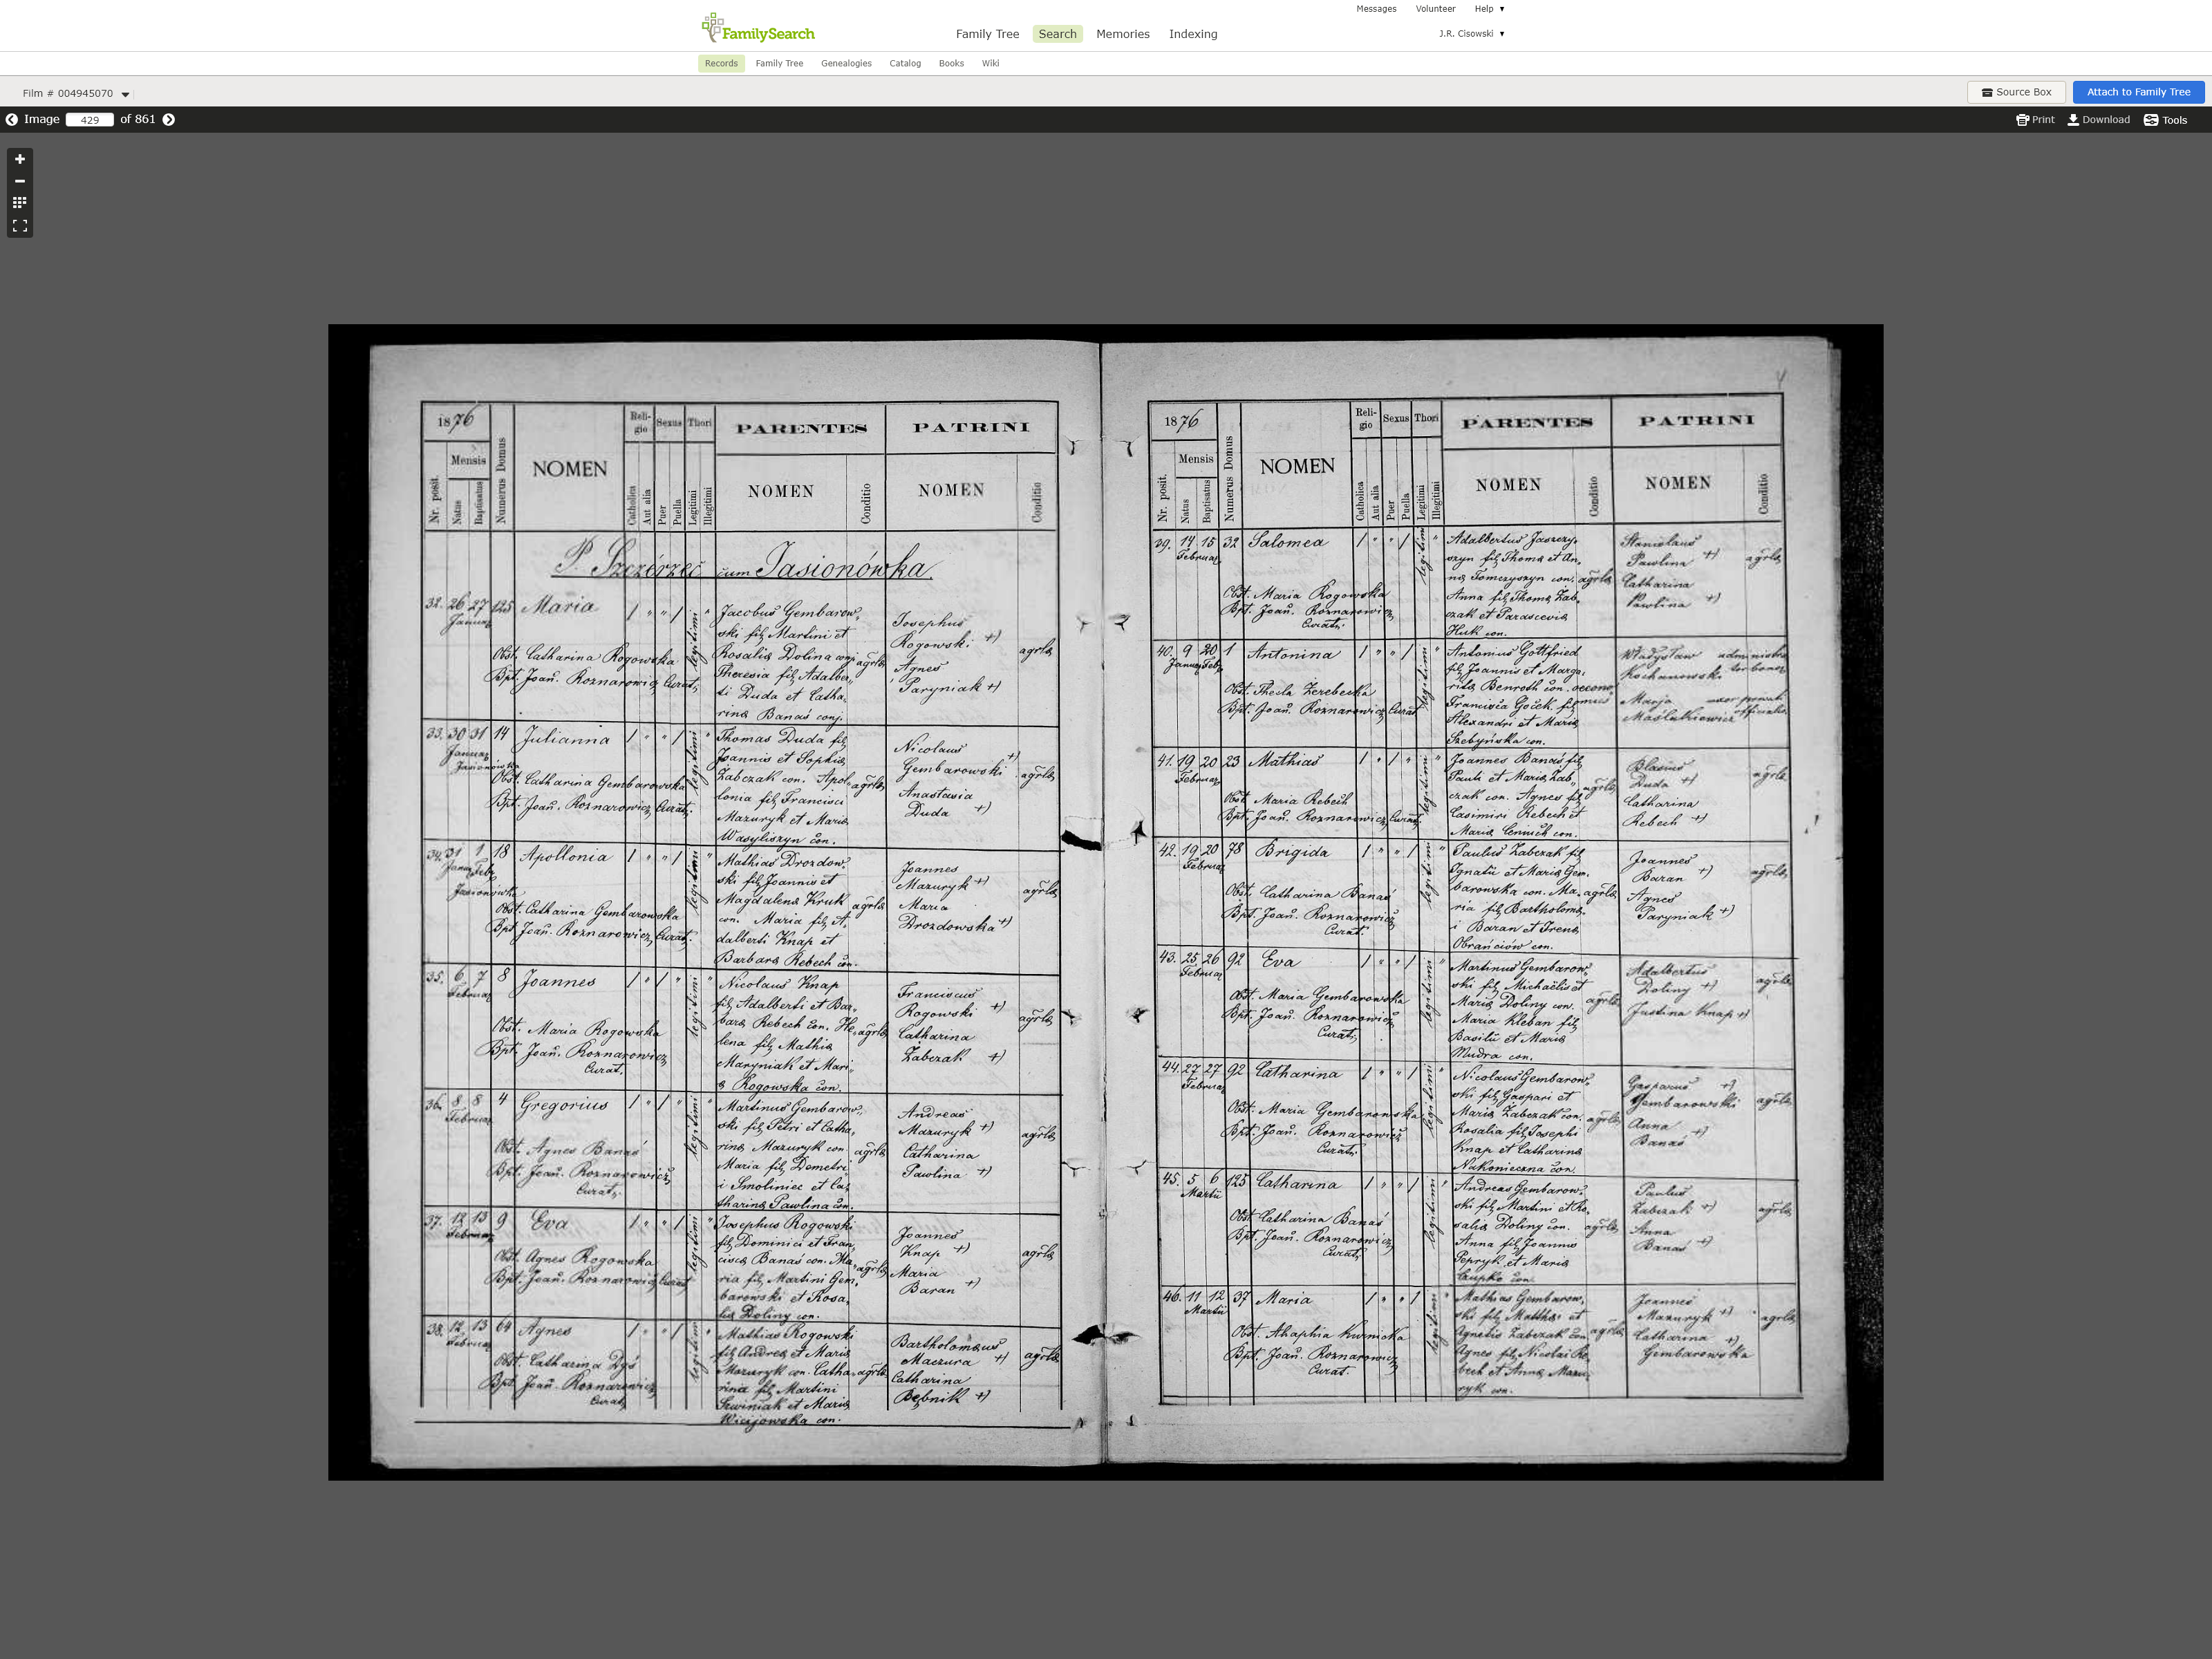 Messages Volunteer Help
FamilySearch
Family Tree Search Memories Indexing
J.R. Cisowski
Records Family Tree Genealogies Catalog Books Wiki
Film # 004945070
Source Box Attach to Family Tree
Image 429 of 861
Print Download Tools
1876
Nr. posit.
Mensis
Natus
Baptisatus
Numerus Domus
NOMEN
Religio
Catholica
Aut alia
Sexus
Puer
Puella
Thori
Legitimi
Illegitimi
PARENTES
NOMEN
Conditio
PATRINI
NOMEN
Conditio
P. Szczérzec cum Jasionówka
32. 26 27 125 Maria
Januar
Obst. Catharina Rogowska
Bpt. Joan. Roznarowicz Curat.
legitimi
Jacobus Gembarow-
ski fil. Martini et
Rosalia Dolina conj.
Theresia fil. Adalber-
ti Duda et Catha-
rina Banaś conj.
Josephus
Rogowski +)
Agnes
Paryniak +)
33. 30 31 14 Julianna
Januar
Jasionówka
Obst. Catharina Gembarowska
Bpt. Joan. Roznarowicz Curat.
legitimi
Thomas Duda fil.
Joannis et Sophia
Żabczak con. Apol-
lonia fil. Francisci
Mazuryk et Maria
Wasyliszyn con.
Nicolaus
Gembarowski +)
Anastasia
Duda +)
34. 31 1 18 Apollonia
Januar Feb.
Jasionówka
Obst. Catharina Gembarowska
Bpt. Joan. Roznarowicz Curat.
legitimi
Mathias Drozdow-
ski fil. Joannis et
Magdalena Kruk
con. Maria fil. A-
dalberti Knap et
Barbara Rebech con.
Joannes
Mazuryk +)
Maria
Drozdowska +)
35. 6 7 8 Joannes
Februar
Obst. Maria Rogowska
Bpt. Joan. Roznarowicz
Curat.
legitimi
Nicolaus Knap
fil. Adalberti et Bar-
bara Rebech con. He-
lena fil. Mathia
Maryniak et Mari-
a Rogowska con.
Franciscus
Rogowski +)
Catharina
Żabczak +)
36. 8 8 4 Gregorius
Februar
Obst. Agnes Banaś
Bpt. Joan. Roznarowicz
Curat.
legitimi
Martinus Gembarow-
ski fil. Petri et Catha-
rina Mazuryk con.
Maria fil. Demetri-
i Smoliniec et Ca-
tharina Pawlina con.
Andreas
Mazuryk +)
Catharina
Pawlina +)
37. 12 13 9 Eva
Februar
Obst. Agnes Rogowska
Bpt. Joan. Roznarowicz Curat.
legitimi
Josephus Rogowski
fil. Dominici et Fran-
cisca Banaś con. Ma-
ria fil. Martini Gem-
barowski et Rosa-
lia Doliny con.
Joannes
Knap +)
Maria
Baran +)
38. 12 13 64 Agnes
Februar
Obst. Catharina Dyś
Bpt. Joan. Roznarowicz
Curat.
legitimi
Mathias Rogowski
fil. Andrea et Maria
Mazuryk con. Catha-
rina fil. Martini
et Maria
Wicijowska con.
Bartholomaus
Maczura +)
Catharina
Bębnik +)
1876
Nr. posit.
Mensis
Natus
Baptisatus
Numerus Domus
NOMEN
Religio
Catholica
Aut alia
Sexus
Puer
Puella
Thori
Legitimi
Illegitimi
PARENTES
NOMEN
Conditio
PATRINI
NOMEN
Conditio
39. 14 15 32 Salomea
Februar
Obst. Maria Rogowska
Bpt. Joan. Roznarowicz
Curat.
legitimi
Adalbertus Jaszczy-
szyn fil. Thoma et An-
na Tomczyszyn con.
Anna fil. Thoma Żab-
czak et Parascevia
Huk con.
Stanislaus
Pawlina +)
Catharina
Pawlina +)
40. 9 20 1 Antonina
Januar Feb.
Obst. Thecla Żerebecka
Bpt. Joan. Roznarowicz Curat.
legitimi
Antonius Gottfried
fil. Joannis et Marga-
rita Benroth con. oecono-
mus
Francisca Goćek fil.
Alexandri et Maria
Szebyńska con.
Władysław
Kochanowski
Marja
Maślutkiewicz
41. 19 20 23 Mathias
Februar
Obst. Maria Rebech
Bpt. Joan. Roznarowicz Curat.
legitimi
Joannes Banaś fil.
Pauli et Maria Żab-
czak con. Agnes fil.
Casimiri Rebech et
Maria con.
Blasius
Duda +)
Catharina
Rebech +)
42. 19 20 78 Brigida
Februar
Obst. Catharina Banaś
Bpt. Joan. Roznarowicz
Curat.
legitimi
Paulus Żabczak fil.
Ignatii et Maria Gem-
barowska con. Ma-
ria fil. Bartholoma-
i Baran et Irena
Obrańciów con.
Joannes
Baran +)
Agnes
Paryniak +)
43. 25 26 92 Eva
Februar
Obst. Maria Gembarowska
Bpt. Joan. Roznarowicz
Curat.
legitimi
Martinus Gembarow-
ski fil. Michaelis et
Maria Doliny con.
Maria Kleban fil.
Basilii et Maria
Mudra con.
Adalbertus
Doliny +)
Justina Knap +)
44. 27 27 92 Catharina
Februar
Obst. Maria Gembarowska
Bpt. Joan. Roznarowicz
Curat.
legitimi
Nicolaus Gembarow-
ski fil. Gaspari et
Maria Żabczak con.
Rosalia fil. Josephi
Knap et Catharina
Nakonieczna con.
Gasparus +)
Gembarowski
Anna
Banaś +)
45. 5 6 125 Catharina
Martii
Obst. Catharina Banaś
Bpt. Joan. Roznarowicz
Curat.
legitimi
Andreas Gembarow-
ski fil. Martini et Ro-
salia Doliny con.
Anna fil. Joannis
Pepryk et Maria
Czupko con.
Paulus
Żabczak +)
Anna
Banaś +)
46. 11 12 37 Maria
Martii
Obst. Ahaphia Kurnicka
Bpt. Joan. Roznarowicz
Curat.
legitimi
Mathias Gembarow-
ski fil. Matthai et
Agnetis Żabczak con.
Agnes fil. Nicolai Re-
bech et Anna Mazu-
ryk con.
Joannes
Mazuryk +)
Catharina +)
Gembarowska